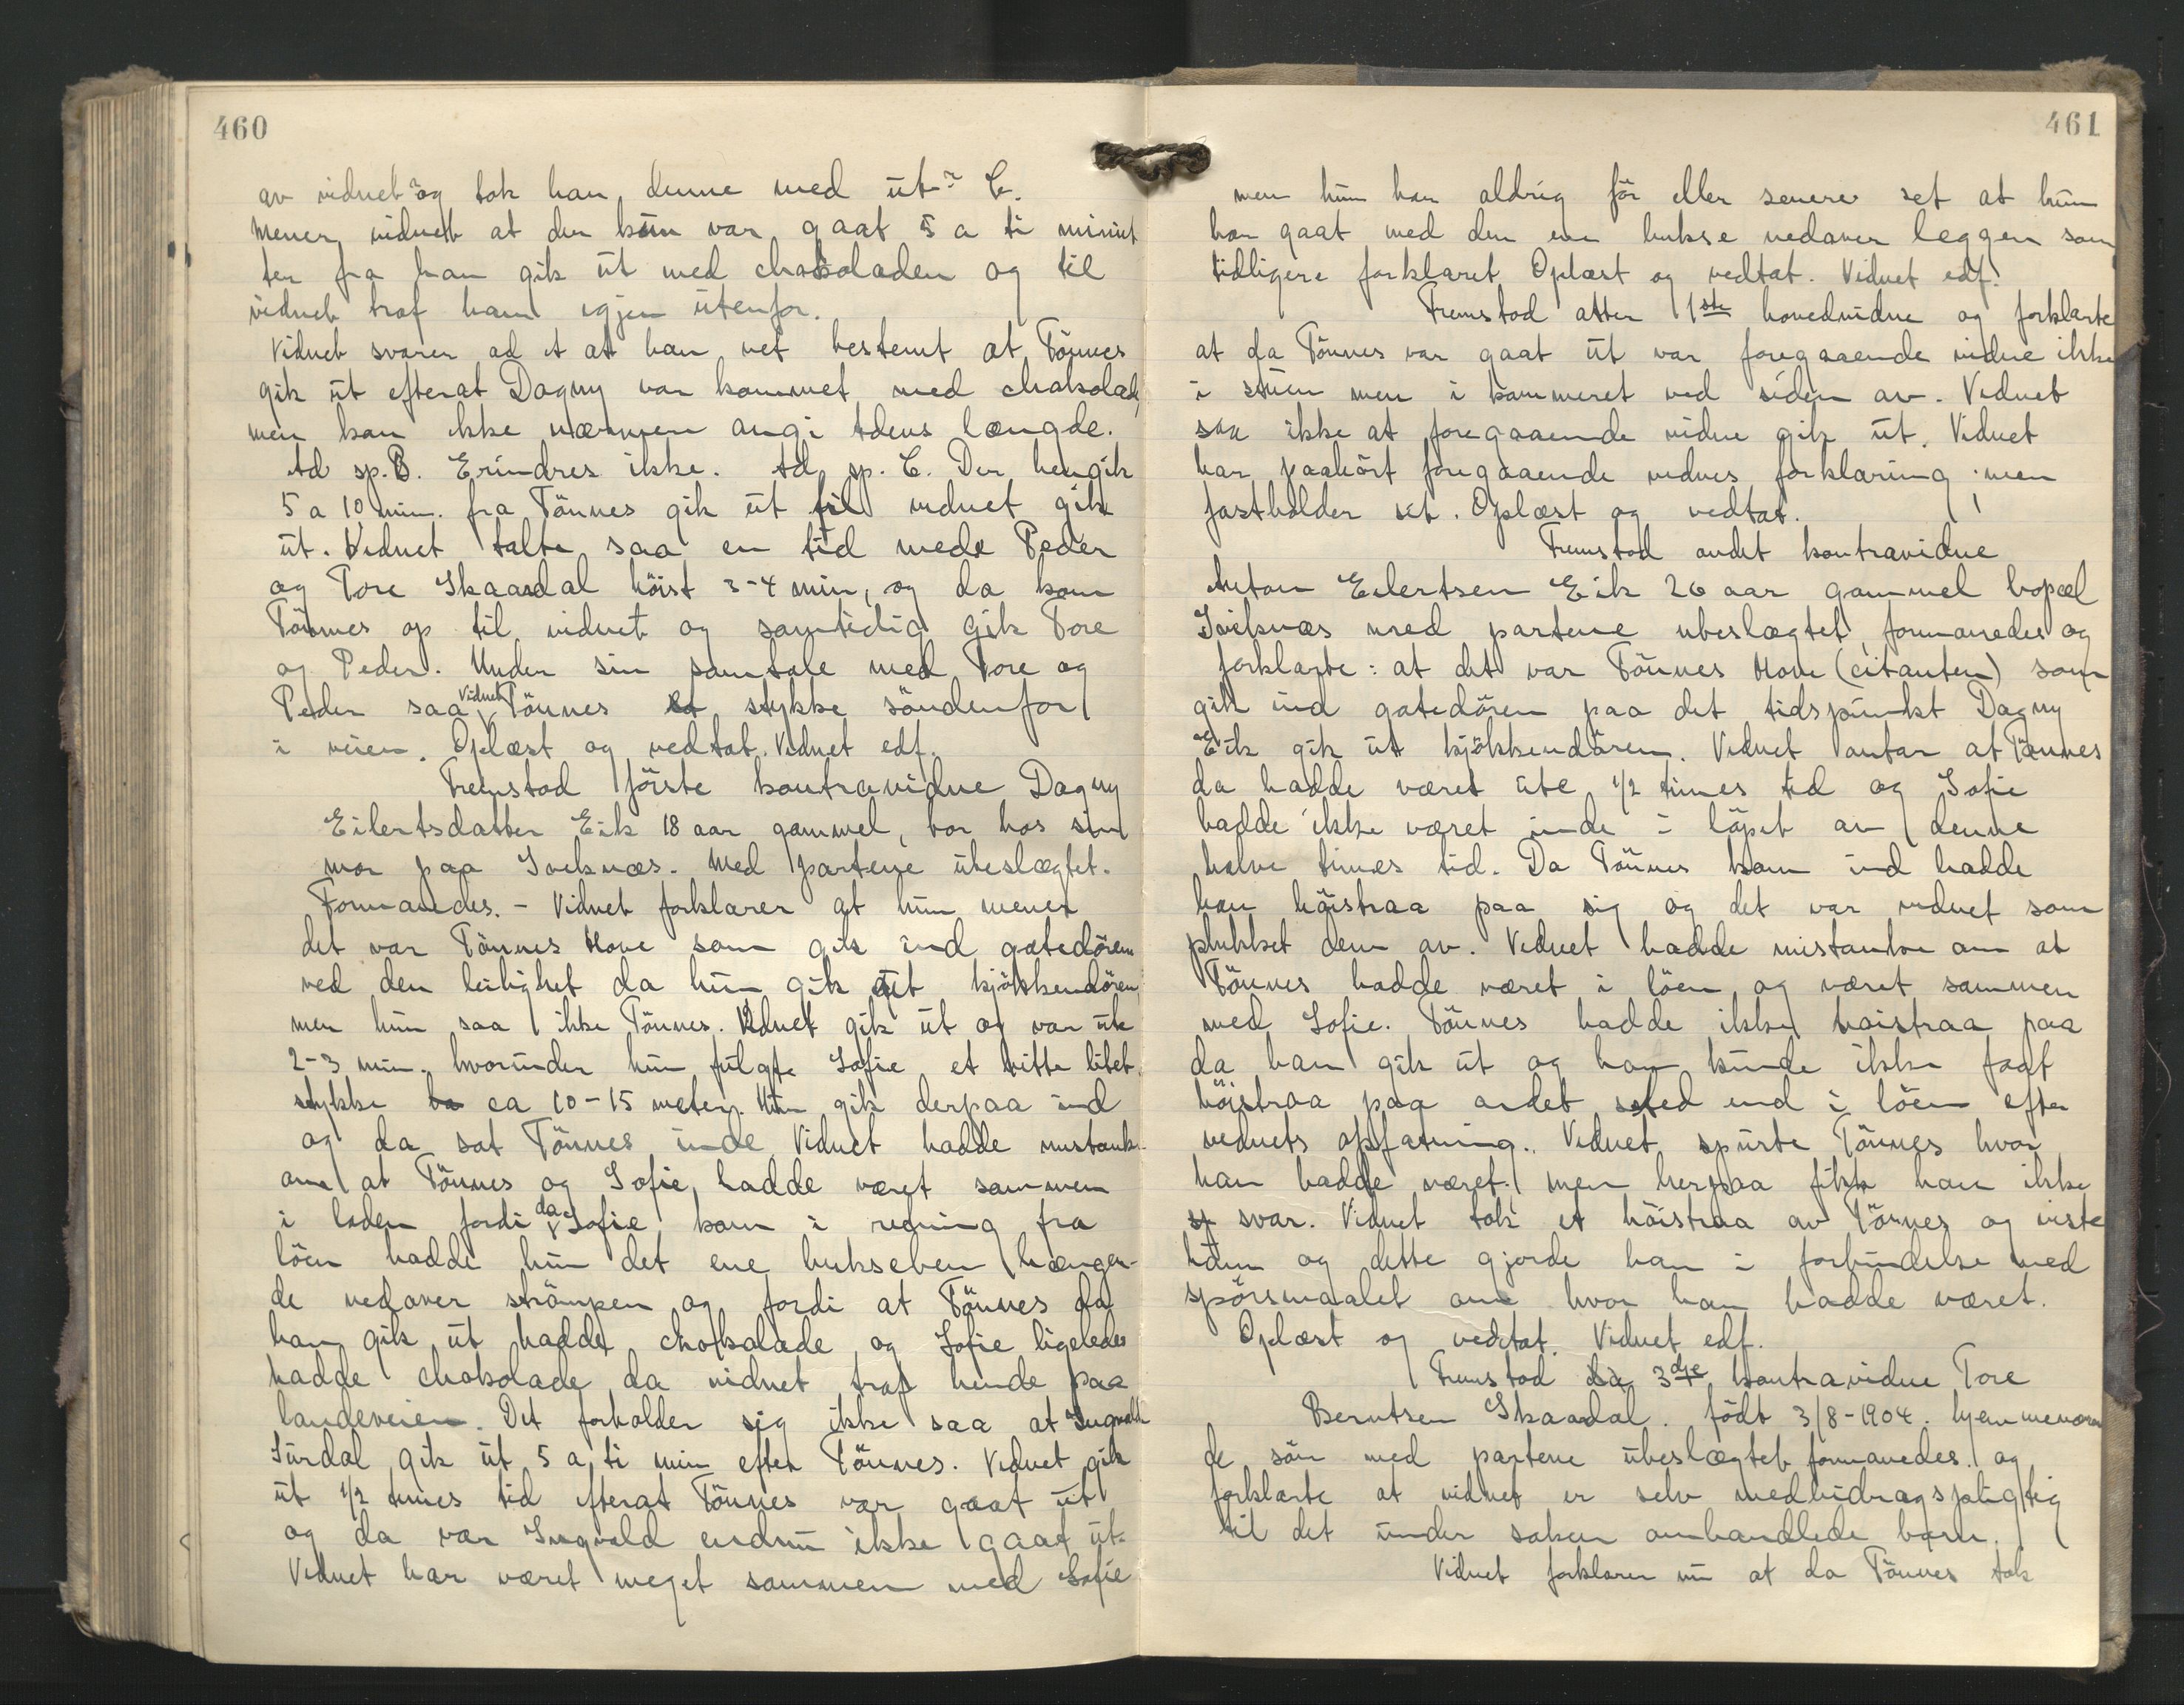 460
av vidnet og tok han denne med ut? C.
Mener vidnet at der kun var gaat 5 a ti minut
ter fra han gik ut med chokoladen og til
vidnet traf ham igjen utenfor.
Vidnet svarer ad A at han vet bestemt at Tönnes
gik ut efterat Dagny var kommet med chokolade,
men kan ikke nærmere angi tidens længde.
Ad sp. B. Erindres ikke. Ad sp. C. Der hengik
5 a 10 min. fra Tönnes gik ut til vidnet gik
ut. Vidnet talte saa en tid med Peder
og Tore Skaadal höist 3-4 min, og da kom
Tönnes op til vidnet og samtidig gik Tore
og Peder. Under sin samtale med Tore og
Peder saa vidnet Tönnes et stykke söndenfor
i veien. Oplæst og vedtat. Vidnet edf.
Fremstod förste kontravidne Dagny
Eilertsdatter Eik 18 aar gammel, bor hos sin
mor paa Soknæs. Med partene ubeslægtet.
Formanedes. - Vidnet forklarer at hun mener
det var Tönnes Hove som gik ind gatedören
ved den leilighet da hun gik ut kjökkendören
men hun saa ikke Tönnes. Vidnet gik ut og var ute
2-3 min. hvorunder hun fulgte Sofie et bitte litet
stykke ca 10-15 meter. Hun gik derpaa ind
og da sat Tönnes inde Vidnet hadde mistanke
om at Tönnes og Sofie hadde været sammen
i loden fordi da Sofie kom i retning fra
löen hadde hun det ene bukseben hængen-
de nedover strömpen og fordi at Tönnes da
han gik ut hadde chokolade og Sofie ligeledes
hadde chokolade da vidnet traf hende paa
landeveien. Det forholder sig ikke saa at Ingvald
Surdal gik ut 5 a ti min efter Tönnes. Vidnet gik
ut 1/2 times tid efterat Tönnes var gaat ut
og da var Ingvald endnu ikke gaat ut.
Vidnet har været meget sammen med Sofie
461
men hun har aldrig för eller senere set at hun
har gaat med den ene bukse nedover leggen som
tidligere forklaret Oplæst og vedtat. Vidnet edf.
Fremstod atter 1ste hovedvidne og forklarte
at da Tönnes var gaat ut var foregaaende vidne ikke
i stuen men i kammeret ved siden av. Vidnet
saa ikke at foregaaende vidne gik ut. Vidnet
har paahört foregaaende vidnes forklaring men
fastholder sit. Oplæst og vedtat.
Fremstod andet kontravidne
Anton Eilertsen Eik 26 aar gammel bopæl
Soknæs med partene ubeslægtet, formanedes og
forklarte: at det var Tönnes Hove (citanten) som
gik ind gatedören paa det tidspunkt Dagny
Eik gik ut kjökkendören. Vidnet antar at Tönnes
da hadde været ute 1/2 times tid og Sofie
hadde ikke været inde i löpet av denne
halve times tid. Da Tönnes kom ind hadde
han höistraa paa sig og det var vidnet som
plukket dem av. Vidnet hadde mistanke om at
Tönnes hadde været i löen og været sammen
med Sofie. Tönnes hadde ikke höistraa paa
da han gik ut og han kunde ikke faat
höistraa paa andet sted end i löen efter
vidnets opfatning. Vidnet spurte Tönnes hvor
han hadde været. men herpaa fikk han ikke
svar. Vidnet tok et höistraa av Tönnes og viste
ham og dette gjorde han i forbindelse med
spörsmaalet om hvor han hadde været.
Oplæst og vedtat. Vidnet edf.
Fremstod 3dje kontravidne Tore
Berntsen Skaadal. födt 3/8-1904. hjemmeværen
de sön med partene ubeslægtet formanedes. og
forklarte at vidnet er selv medbidragspligtig
til det under saken omhandlede barn.
Vidnet forklarer nu at da Tönnes tok